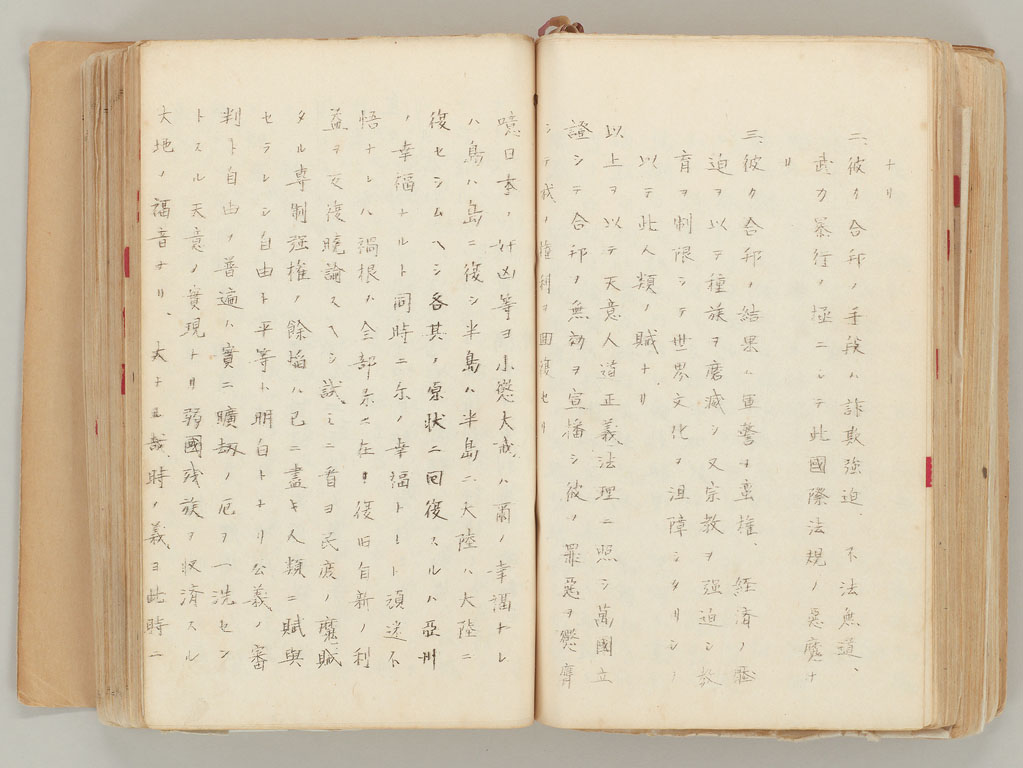 ナリ
二、彼カ合邦ノ手段ハ詐欺強迫、不法無道、
武力暴行ノ極ニシテ此國際法規ノ惡魔ナ
リ
三、彼カ合邦ノ結果ハ軍警ヲ蛮権、経済ノ壓
迫ヲ以テ種族ヲ磨滅シ又宗教ヲ强迫シ教
育ヲ制限シテ世界文化ヲ沮障シタリシハ
以テ此人類ノ賊ナリ
以上ヲ以テ天意人道正義法理ニ照シ萬國立
證シテ合邦ノ無効ヲ宣播シ彼ノ罪惡ヲ懲膺
シテ我ノ権利ヲ囬復セリ
噫日本ノ奸凶等ヨ小懲大戒ハ爾ノ幸福ナレ
ハ島ハ島ニ復シ半島ハ半島ニ、大陸ハ大陸ニ
復セシムヘシ各其ノ原状ニ回復スルハ亞州
ノ幸福ナルト同時ニ尓ノ幸福トモト頑迷不
悟ナレハ禍根ハ全部尓ニ在リ復旧自新ノ利
益ヲ反復曉諭スヘシ試ミニ看ヨ民庶ノ魔賊
タル専制强権ノ餘焔ハ已ニ盡キ人類ニ賦與
セラレシ自由ト平等ト明白トナリ公義ノ審
判ト自由ノ普遍ハ實ニ曠劫ノ厄ヲ一洗セン
トスル天意ノ實現トリ弱國残族ヲ救済スル
大地ノ福音ナリ、大 哉時ノ義ヨ此時ニ